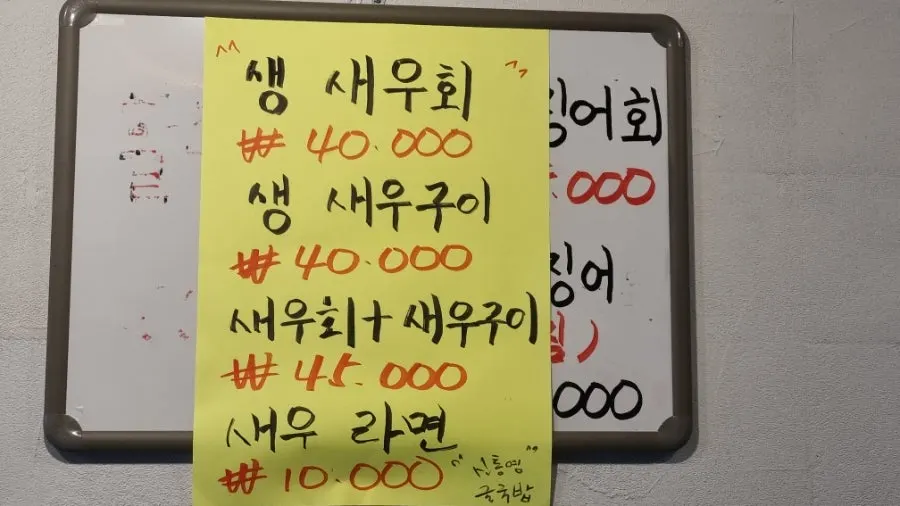 생 새우회
₩ 40.000
생 새우구이
₩ 40.000
새우회+새우구이
₩ 45.000
새우 라면
₩ 10.000
"신통영"
굴국밥
징어회
.000
징어
)
000